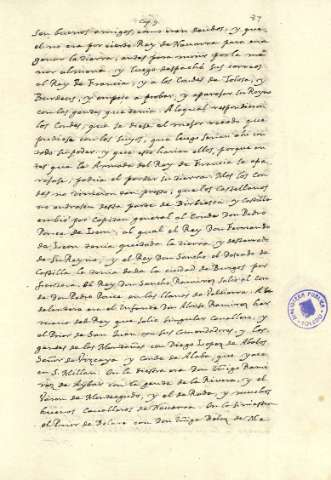 Cap. 9. 27
son buenos amigos, como eran deudos, y que
el no era por cierto Rey de Navarra para ena
genar la tierra, antes para morir por la me
nor almena. y luego despachó sus correos
al Rey de Francia, y a los Condes de Tolosa, y
Burdeos, y empeço a prober, y aparejar los Reynos
con las gentes que tenia. A lo qual respondieron
los Condes, que se diese el mejor recado que
pudiese con los suyos, que luego serian ahi con
todo su poder. y que esto harian ellos, porque an
tes que la Armada del Rey de Francia se apa
rejase, podia el perder su tierra. Mas los Con
des no vinieron tan presto, que los Castellanos
no entrasen desta parte de Birbiesca. y Castilla
embió por Capitan general al Conde Don Pedro
Ponce de Leon, al qual el Rey Don Fernando
de Leon tenia quitada la tierra, y desterrado
de su Reyno, y el Rey Don Sancho el Deseado de
Castilla lo tenia dada la ciudad de Burgos por
frontera. El Rey Don Sancho Ramirez salió al con
de Don Pedro Ponce en los llanos de Valpierra. A la
delantera era el Infante Don Alonso Ramirez her
mano del Rey que salió singular cavallero, y
el Prior de San Juan con sus Comendadores y las
gentes de las Montañas con Diego Lopez de Abalos
Señor de Vizcaya y Conde de Alaba, que yace
en S. Millan. En la diestra era Don Iñigo Rami
rez de Aybar con la gente de la Rivera, y el
Varon de Monteagudo, y el de Rada, y muchos
buenos Cavalleros de Navarra. En la siniestra
el Prior de con Don Iñigo Velez de
BIBLIOTECA PUBLICA